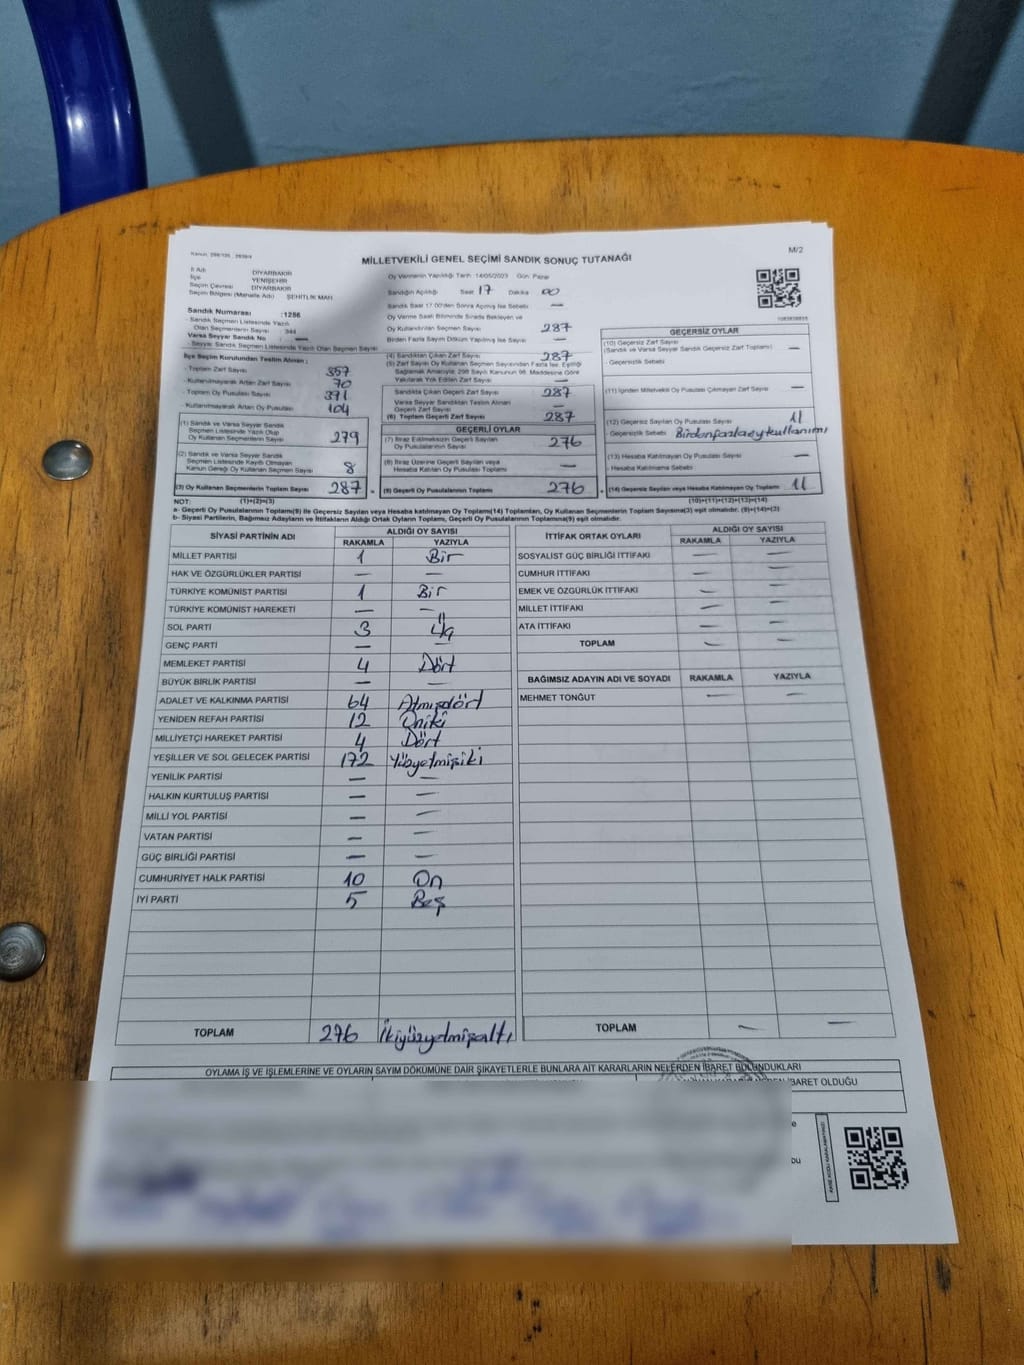 M/2
MİLLETVEKİLİ GENEL SEÇİMİ SANDIK SONUÇ TUTANAĞI
İl Adı DİYARBAKIR
İlçe YENİŞEHİR
Seçim Çevresi DİYARBAKIR
Seçim Bölgesi (Mahalle Adı) ŞEHİTLİK MAH
Sandık Numarası :1286
- Sandık Seçmen Listesinde Yazılı
Olan Seçmenlerin Sayısı 344
Varsa Seyyar Sandık No : —
- Seyyar Sandık Seçmen Listesinde Yazılı Olan Seçmen Sayısı
Oy Vermenin Yapıldığı Tarih :14/05/2023 Gün: Pazar
Sandığın Açıldığı Saat 17 Dakika 00
Sandık Saat 17.00'den Sonra Açılmış İse Sebebi —
Oy Verme Saati Bitiminde Sırada Bekleyen ve
Oy Kullandırılan Seçmen Sayısı 287
Birden Fazla Sayım Döküm Yapılmış İse Sayısı —
İlçe Seçim Kurulundan Teslim Alınan :
- Toplam Zarf Sayısı 357
- Kullanılmayarak Artan Zarf Sayısı 70
- Toplam Oy Pusulası 391
- Kullanılmayarak Artan Oy Pusulası 104
(1) Sandık ve Varsa Seyyar Sandık
Seçmen Listesinde Yazılı Olup
Oy Kullanan Seçmenlerin Sayısı 279
(2) Sandık ve Varsa Seyyar Sandık
Seçmen Listesinde Kayıtlı Olmayan
Kanun Gereği Oy Kullanan Seçmen Sayısı 8
(3) Oy Kullanan Seçmenlerin Toplam Sayısı 287
(4) Sandıktan Çıkan Zarf Sayısı 287
(5) Zarf Sayısı Oy Kullanan Seçmen Sayısından Fazla İse, Eşitliği
Sağlamak Amacıyla; 298 Sayılı Kanunun 98. Maddesine Göre
Yakılarak Yok Edilen Zarf Sayısı —
Sandıkta Çıkan Geçerli Zarf Sayısı 287
Varsa Seyyar Sandıktan Teslim Alınan
Geçerli Zarf Sayısı —
(6) Toplam Geçerli Zarf Sayısı 287
GEÇERLİ OYLAR
(7) İtiraz Edilmeksizin Geçerli Sayılan
Oy Pusulalarının Sayısı 276
(8) İtiraz Üzerine Geçerli Sayılan veya
Hesaba Katılan Oy Pusulası Toplamı —
(9) Geçerli Oy Pusulalarının Toplamı 276
GEÇERSİZ OYLAR
(10) Geçersiz Zarf Sayısı
(Sandık ve Varsa Seyyar Sandık Geçersiz Zarf Toplamı) —
- Geçersizlik Sebebi
(11) İçinden Milletvekili Oy Pusulası Çıkmayan Zarf Sayısı —
(12) Geçersiz Sayılan Oy Pusulası Sayısı 11
- Geçersizlik Sebebi Birden fazla oy kullanımı
(13) Hesaba Katılmayan Oy Pusulası Sayısı —
- Hesaba Katılmama Sebebi
(14) Geçersiz Sayılan veya Hesaba Katılmayan Oy Toplamı 11
NOT: (1)+(2)=(3) (10)+(11)+(12)+(13)=(14)
a- Geçerli Oy Pusulaları Toplamı(9) ile Geçersiz Sayılan veya Hesaba katılmayan Oy Toplamı(14) Toplamları, Oy Kullanan Seçmenlerin Toplam Sayısına(3) eşit olmalıdır. (9)+(14)=(3)
b- Siyasi Partilerin, Bağımsız Adayların ve İttifakların Aldığı Ortak Oyların Toplamı, Geçerli Oy Pusulalarının Toplamına(9) eşit olmalıdır.
SİYASİ PARTİNİN ADI ALDIĞI OY SAYISI
RAKAMLA YAZIYLA
MİLLET PARTİSİ 1 Bir
HAK VE ÖZGÜRLÜKLER PARTİSİ — —
TÜRKİYE KOMÜNİST PARTİSİ 1 Bir
TÜRKİYE KOMÜNİST HAREKETİ — —
SOL PARTİ 3 Üç
GENÇ PARTİ — —
MEMLEKET PARTİSİ 4 Dört
BÜYÜK BİRLİK PARTİSİ — —
ADALET VE KALKINMA PARTİSİ 64 Atmışdört
YENİDEN REFAH PARTİSİ 12 Oniki
MİLLİYETÇİ HAREKET PARTİSİ 4 Dört
YEŞİLLER VE SOL GELECEK PARTİSİ 172 Yüzyetmişiki
YENİLİK PARTİSİ — —
HALKIN KURTULUŞ PARTİSİ — —
MİLLİ YOL PARTİSİ — —
VATAN PARTİSİ — —
GÜÇ BİRLİĞİ PARTİSİ — —
CUMHURİYET HALK PARTİSİ 10 On
İYİ PARTİ 5 Beş
TOPLAM 276 İkiyüzyetmişaltı
İTTİFAK ORTAK OYLARI ALDIĞI OY SAYISI
RAKAMLA YAZIYLA
SOSYALİST GÜÇ BİRLİĞİ İTTİFAKI — —
CUMHUR İTTİFAKI — —
EMEK VE ÖZGÜRLÜK İTTİFAKI — —
MİLLET İTTİFAKI — —
ATA İTTİFAKI — —
TOPLAM — —
BAĞIMSIZ ADAYIN ADI VE SOYADI RAKAMLA YAZIYLA
MEHMET TONĞUT — —
TOPLAM — —
OYLAMA İŞ VE İŞLEMLERİNE VE OYLARIN SAYIM DÖKÜMÜNE DAİR ŞİKAYETLERLE BUNLARA AİT KARARLARIN NELERDEN İBARET BULUNDUKLARI
İBARET OLDUĞU